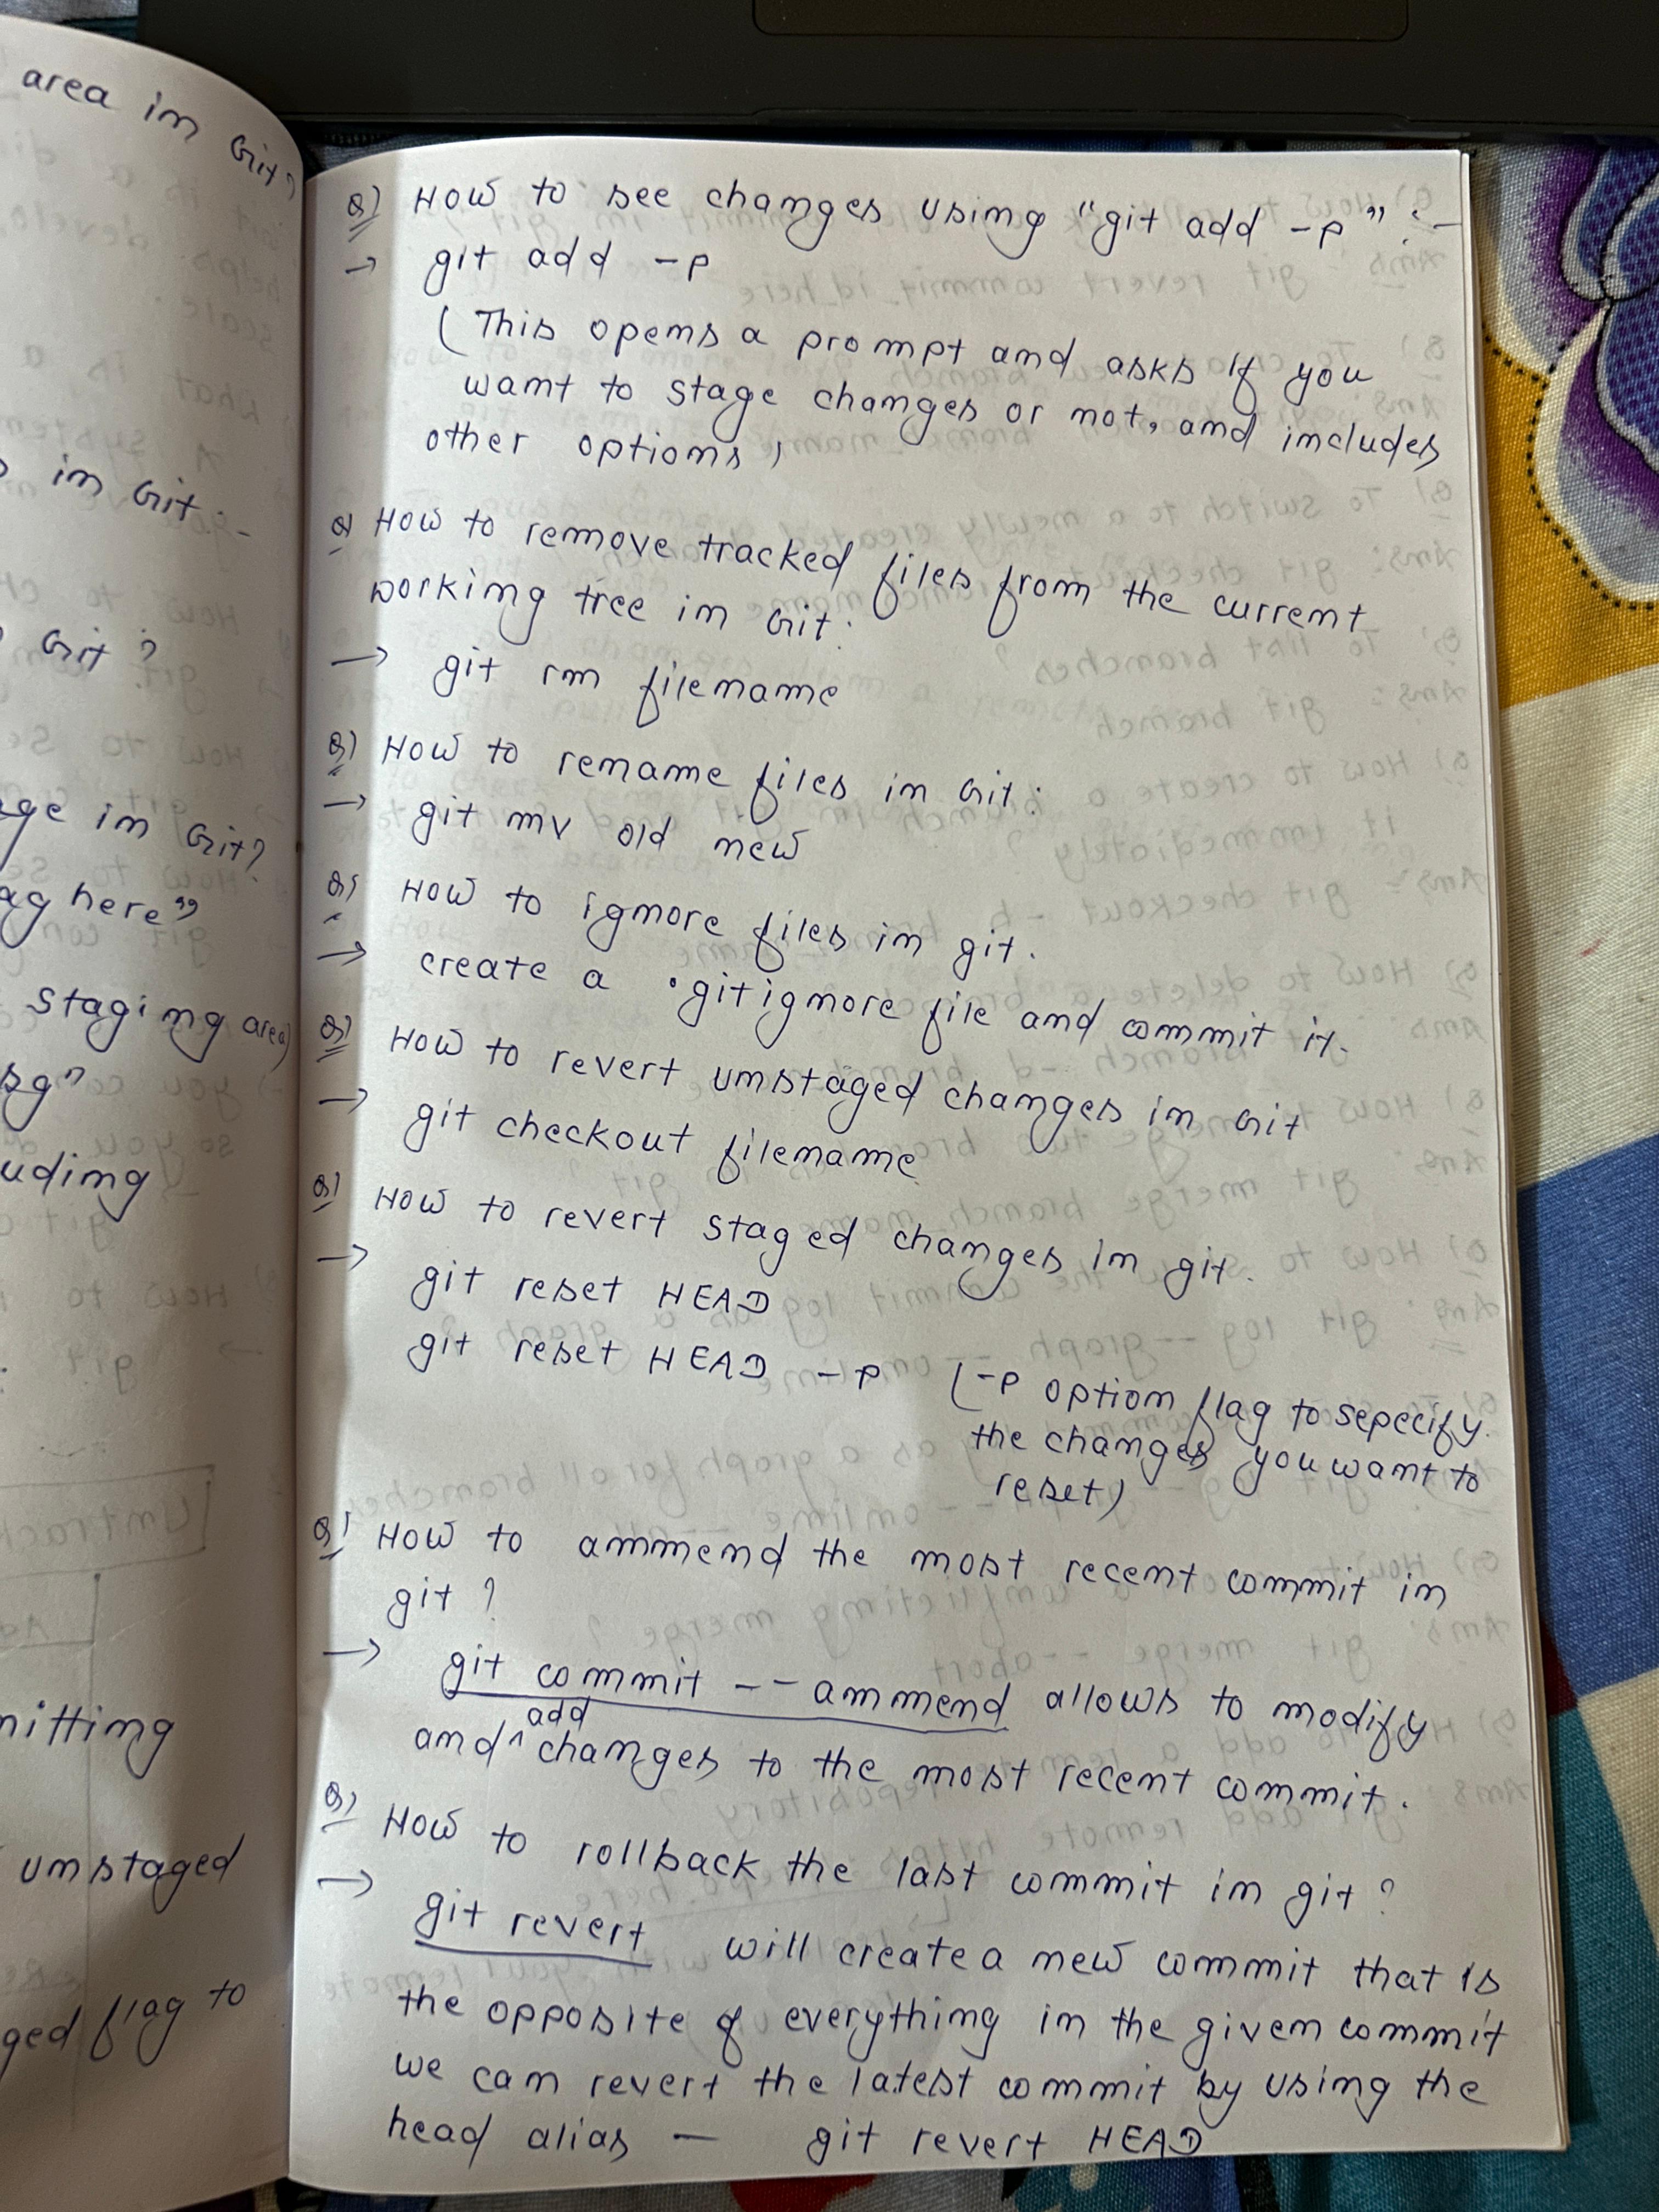 area in Git?
s in Git :-
Git ?
age in Git?
ag here"
staging area)
sg"
uding
mitting
unstaged
ged flag to
Q) How to see changes using "git add -p" :-
→ git add -p
(This opens a prompt and asks if you
want to stage changes or not, and includes
other options)
Q) How to remove tracked files from the current
working tree in Git:
→ git rm filename
Q) How to rename files in Git:
→ git mv old new
Q) How to ignore files in git.
→ create a .gitignore file and commit it.
Q) How to revert unstaged changes in Git
→ git checkout filename
Q) How to revert staged changes in git.
→ git reset HEAD
git reset HEAD -p (-p option flag to sepecify
the changes you want to
reset)
Q) How to ammend the most recent commit in
git ?
→ git commit -- ammend allows to modify
and ^ add changes to the most recent commit.
Q) How to rollback the last commit in git ?
→ git revert will create a new commit that is
the opposite of everything in the given commit
we can revert the latest commit by using the
head alias — git revert HEAD